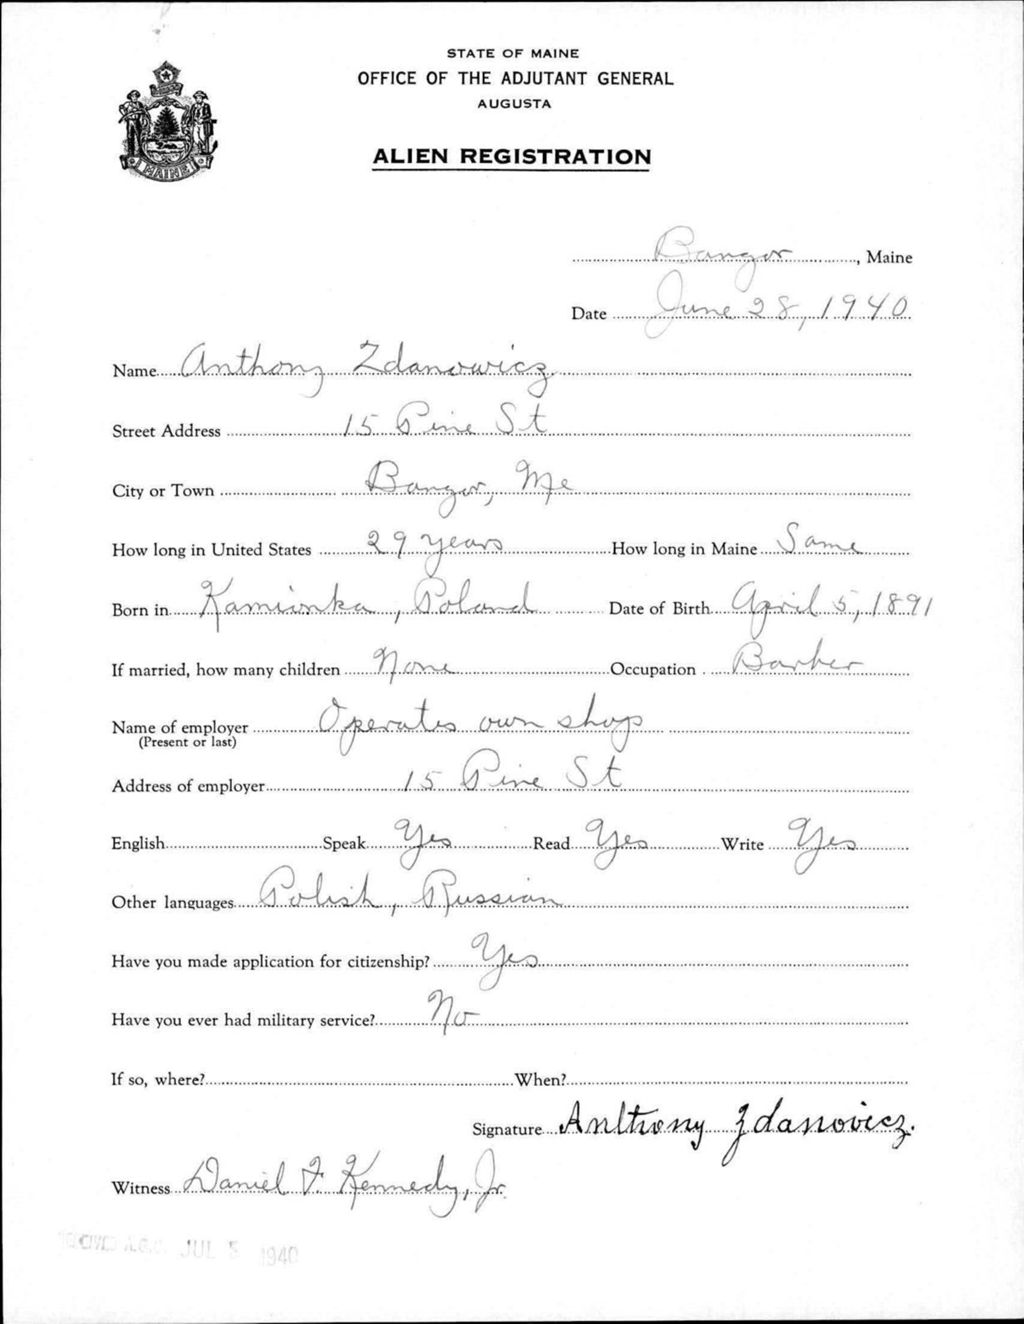 STATE OF MAINE
OFFICE OF THE ADJUTANT GENERAL
AUGUSTA
ALIEN REGISTRATION
MAINE
Bangor, Maine
Date June 28, 1940
Name Anthony Zdanowicz
Street Address 15 Pine St
City or Town Bangor, Me
How long in United States 29 years How long in Maine Same
Born in Kamionka, Poland Date of Birth April 5, 1891
If married, how many children None Occupation Barber
Name of employer Operates own shop
(Present or last)
Address of employer 15 Pine St
English Speak Yes Read Yes Write Yes
Other languages Polish, Russian
Have you made application for citizenship? Yes
Have you ever had military service? No
If so, where? When?
Signature Anthony Zdanovicz.
Witness Daniel F. Kennedy, Jr.
RECEIVED A.G.O. JUL 5 1940